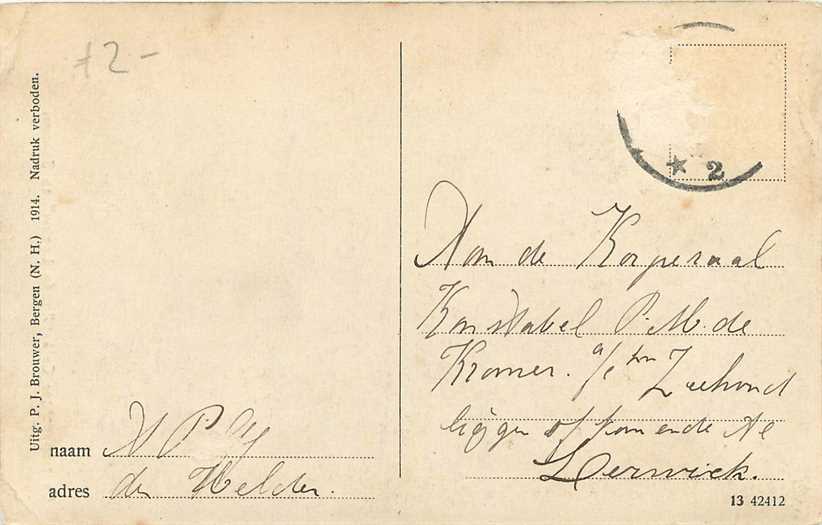 12-
Uitg. P. J. Brouwer, Bergen (N. H.) 1914. Nadruk verboden.
2
Aan de Korperaal
Konstabel P. M. de
Kromer. a/b Zeehond
liggen of komende te
Lerwick.
naam
adres den Helder.
13 42412